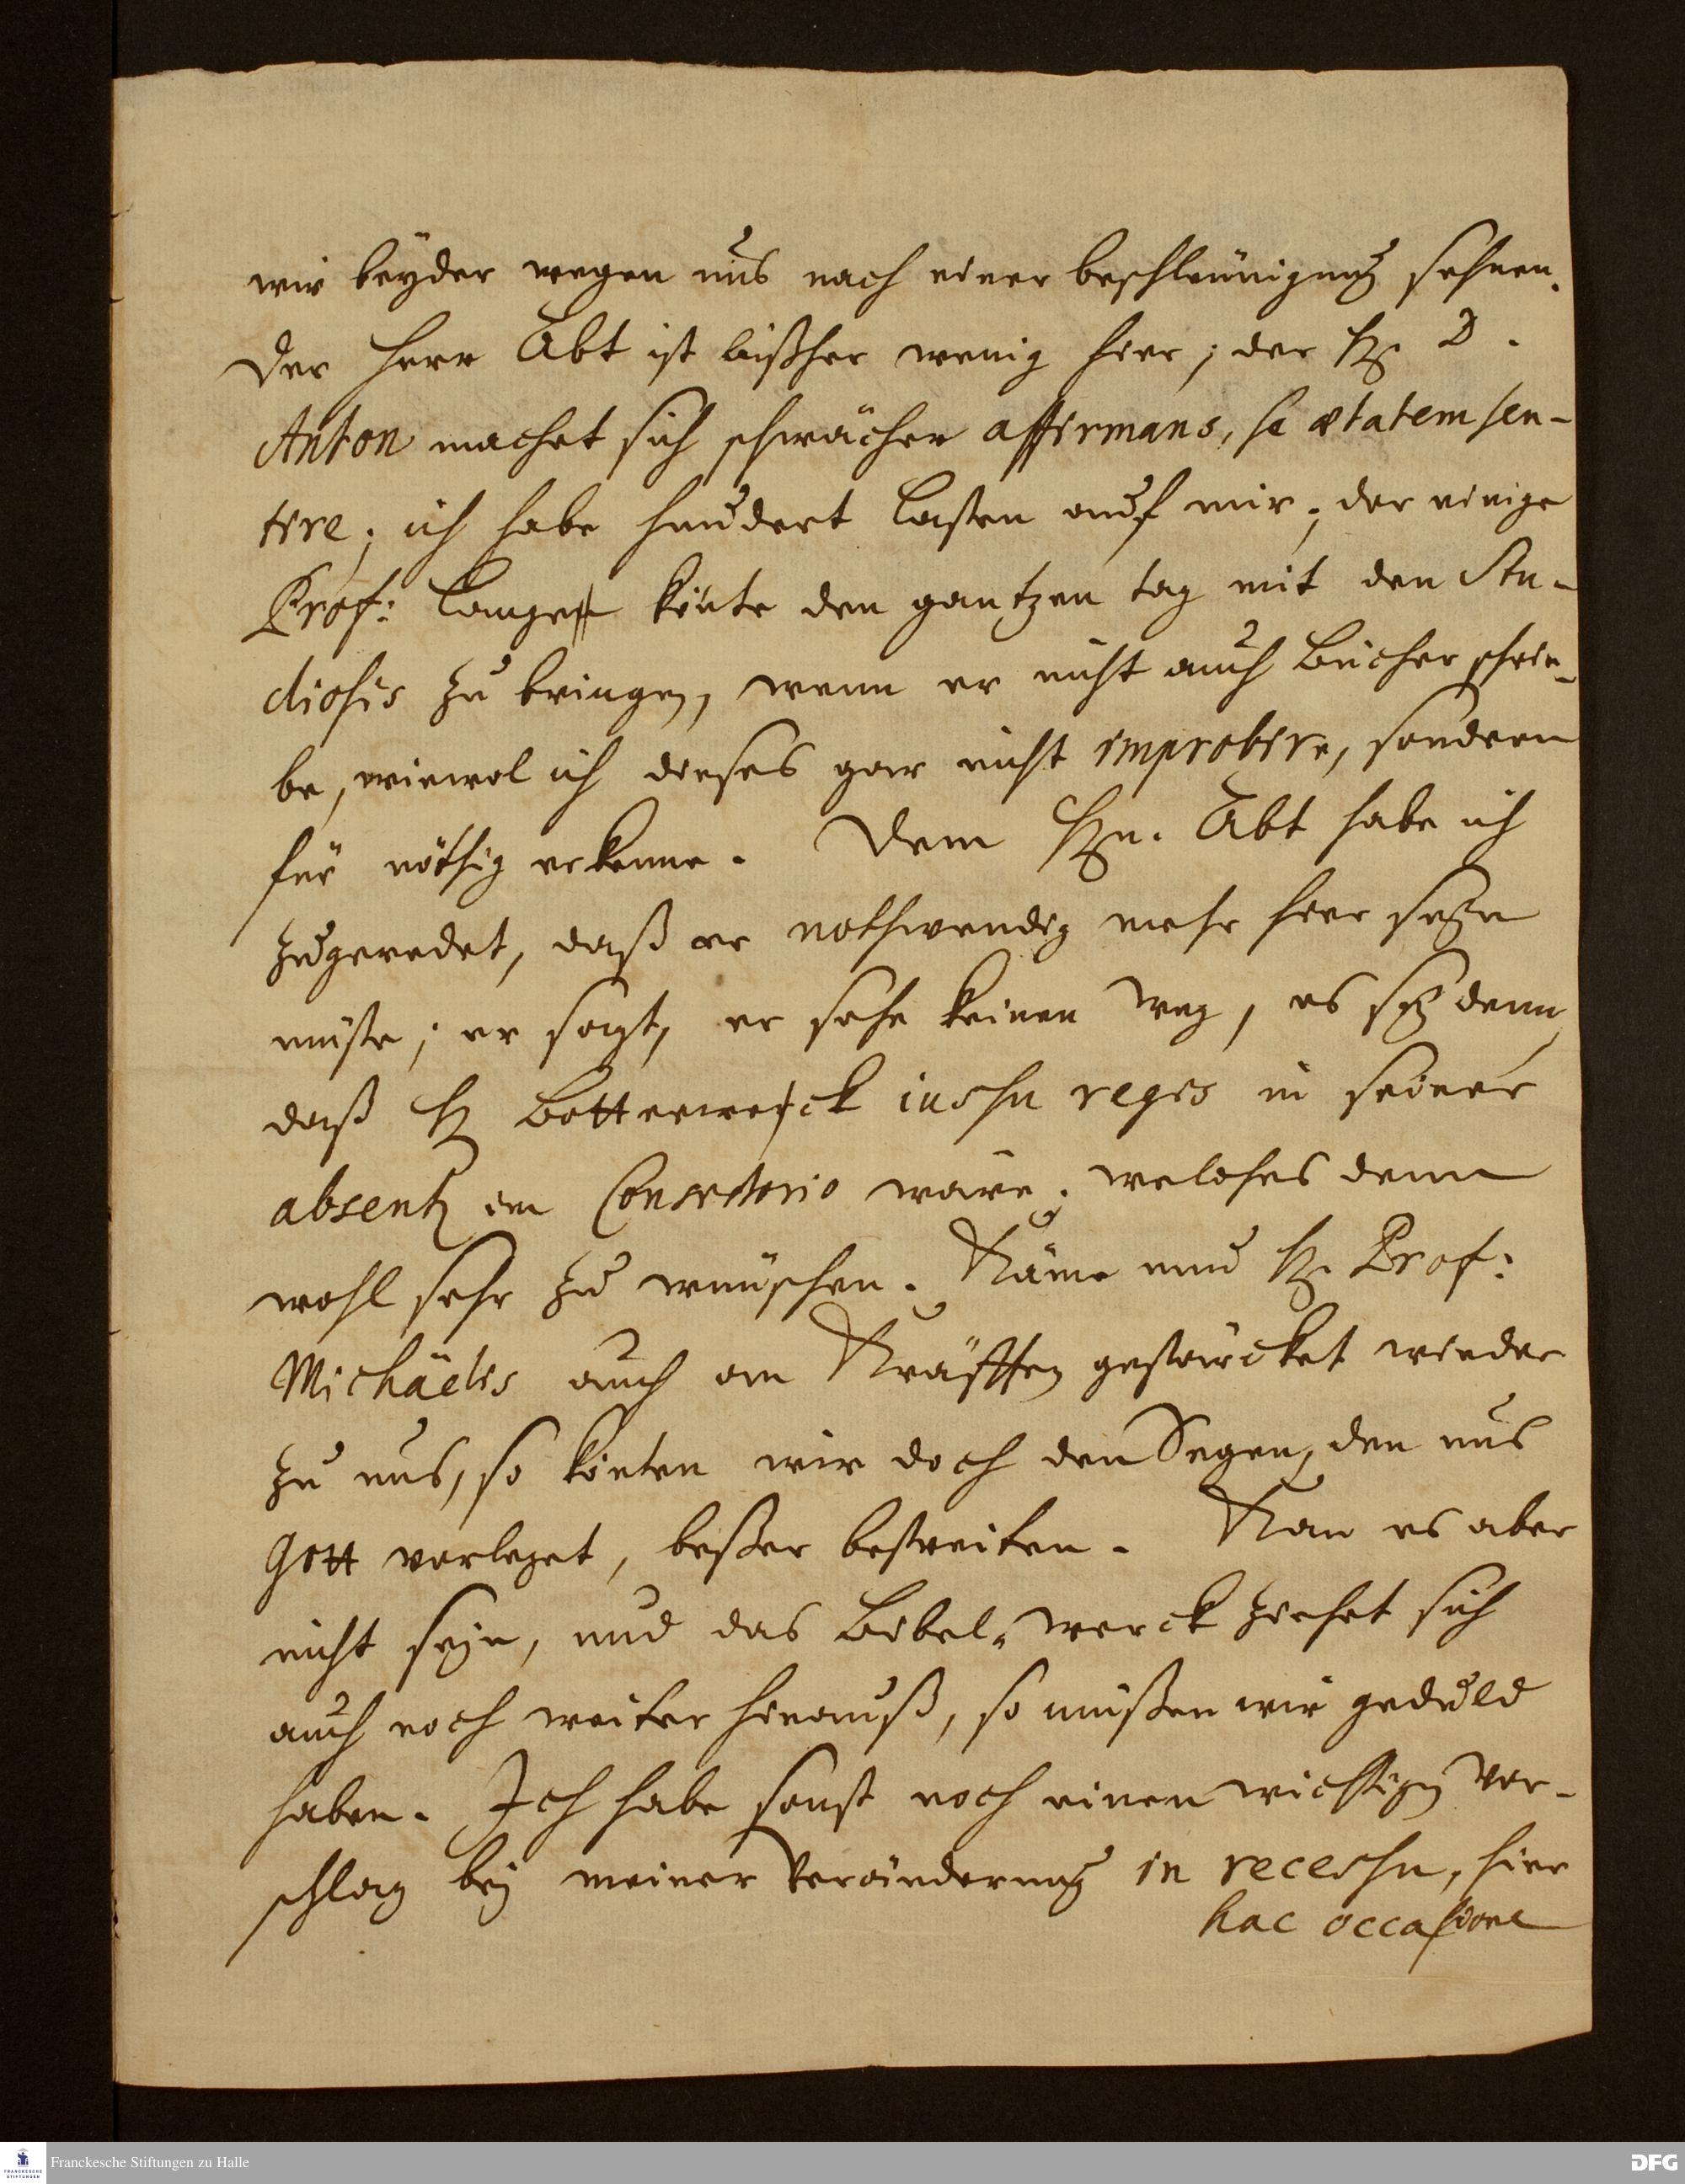 wir beyder wegen uns nach einer beschleunigung sehnen.
Der Herr Abt ist bißher wenig hier; der Hr. D.
Anton machet sich schwächer affirmans, se ætatem sen-
tire; ich habe hundert Lasten auf mir; der einige
Prof: Lange könte den gantzen tag mit den Stu-
diosis zu bringen, wenn er nicht auch Bücher schrie-
be, wiewol ich dieses gar nicht improbire, sondern
für nöthig erkenne. Dem Hrn. Abt habe ich
zugeredet, daß er nothwendig mehr hier seyn
müste; er sagt, er sehe keinen weg, es sey denn,
daß Hr Botterweck iussu regis in seiner
absentz im Consistorio wäre; welches denn
wohl sehr zu wünschen. Käme nun Hr. Prof:
Michäelis auch an Kräfften gestärcket wieder
zu uns, so könten wir doch den Segen, den uns
Gott vorleget, beßer bestreiten. Kan es aber
nicht seyn, und das Bibel-werck ziehet sich
auch noch weiter hinauß, so müßen wir geduld
haben. Ich habe sonst noch einen wichtigen Vor-
schlag bey meiner Veränderung in recessu, hier
hac occasione
Franckesche Stiftungen zu Halle
FRANCKESCHE STIFTUNGEN
DFG